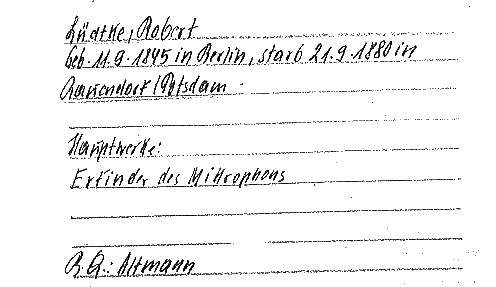 Lüdtke, Robert
Geb. 11.9.1845 in Berlin, starb 21.9.1880 in
/Potsdam.
Hauptwerke:
Erfinder des Mikrophons
B. Q.: Altmann